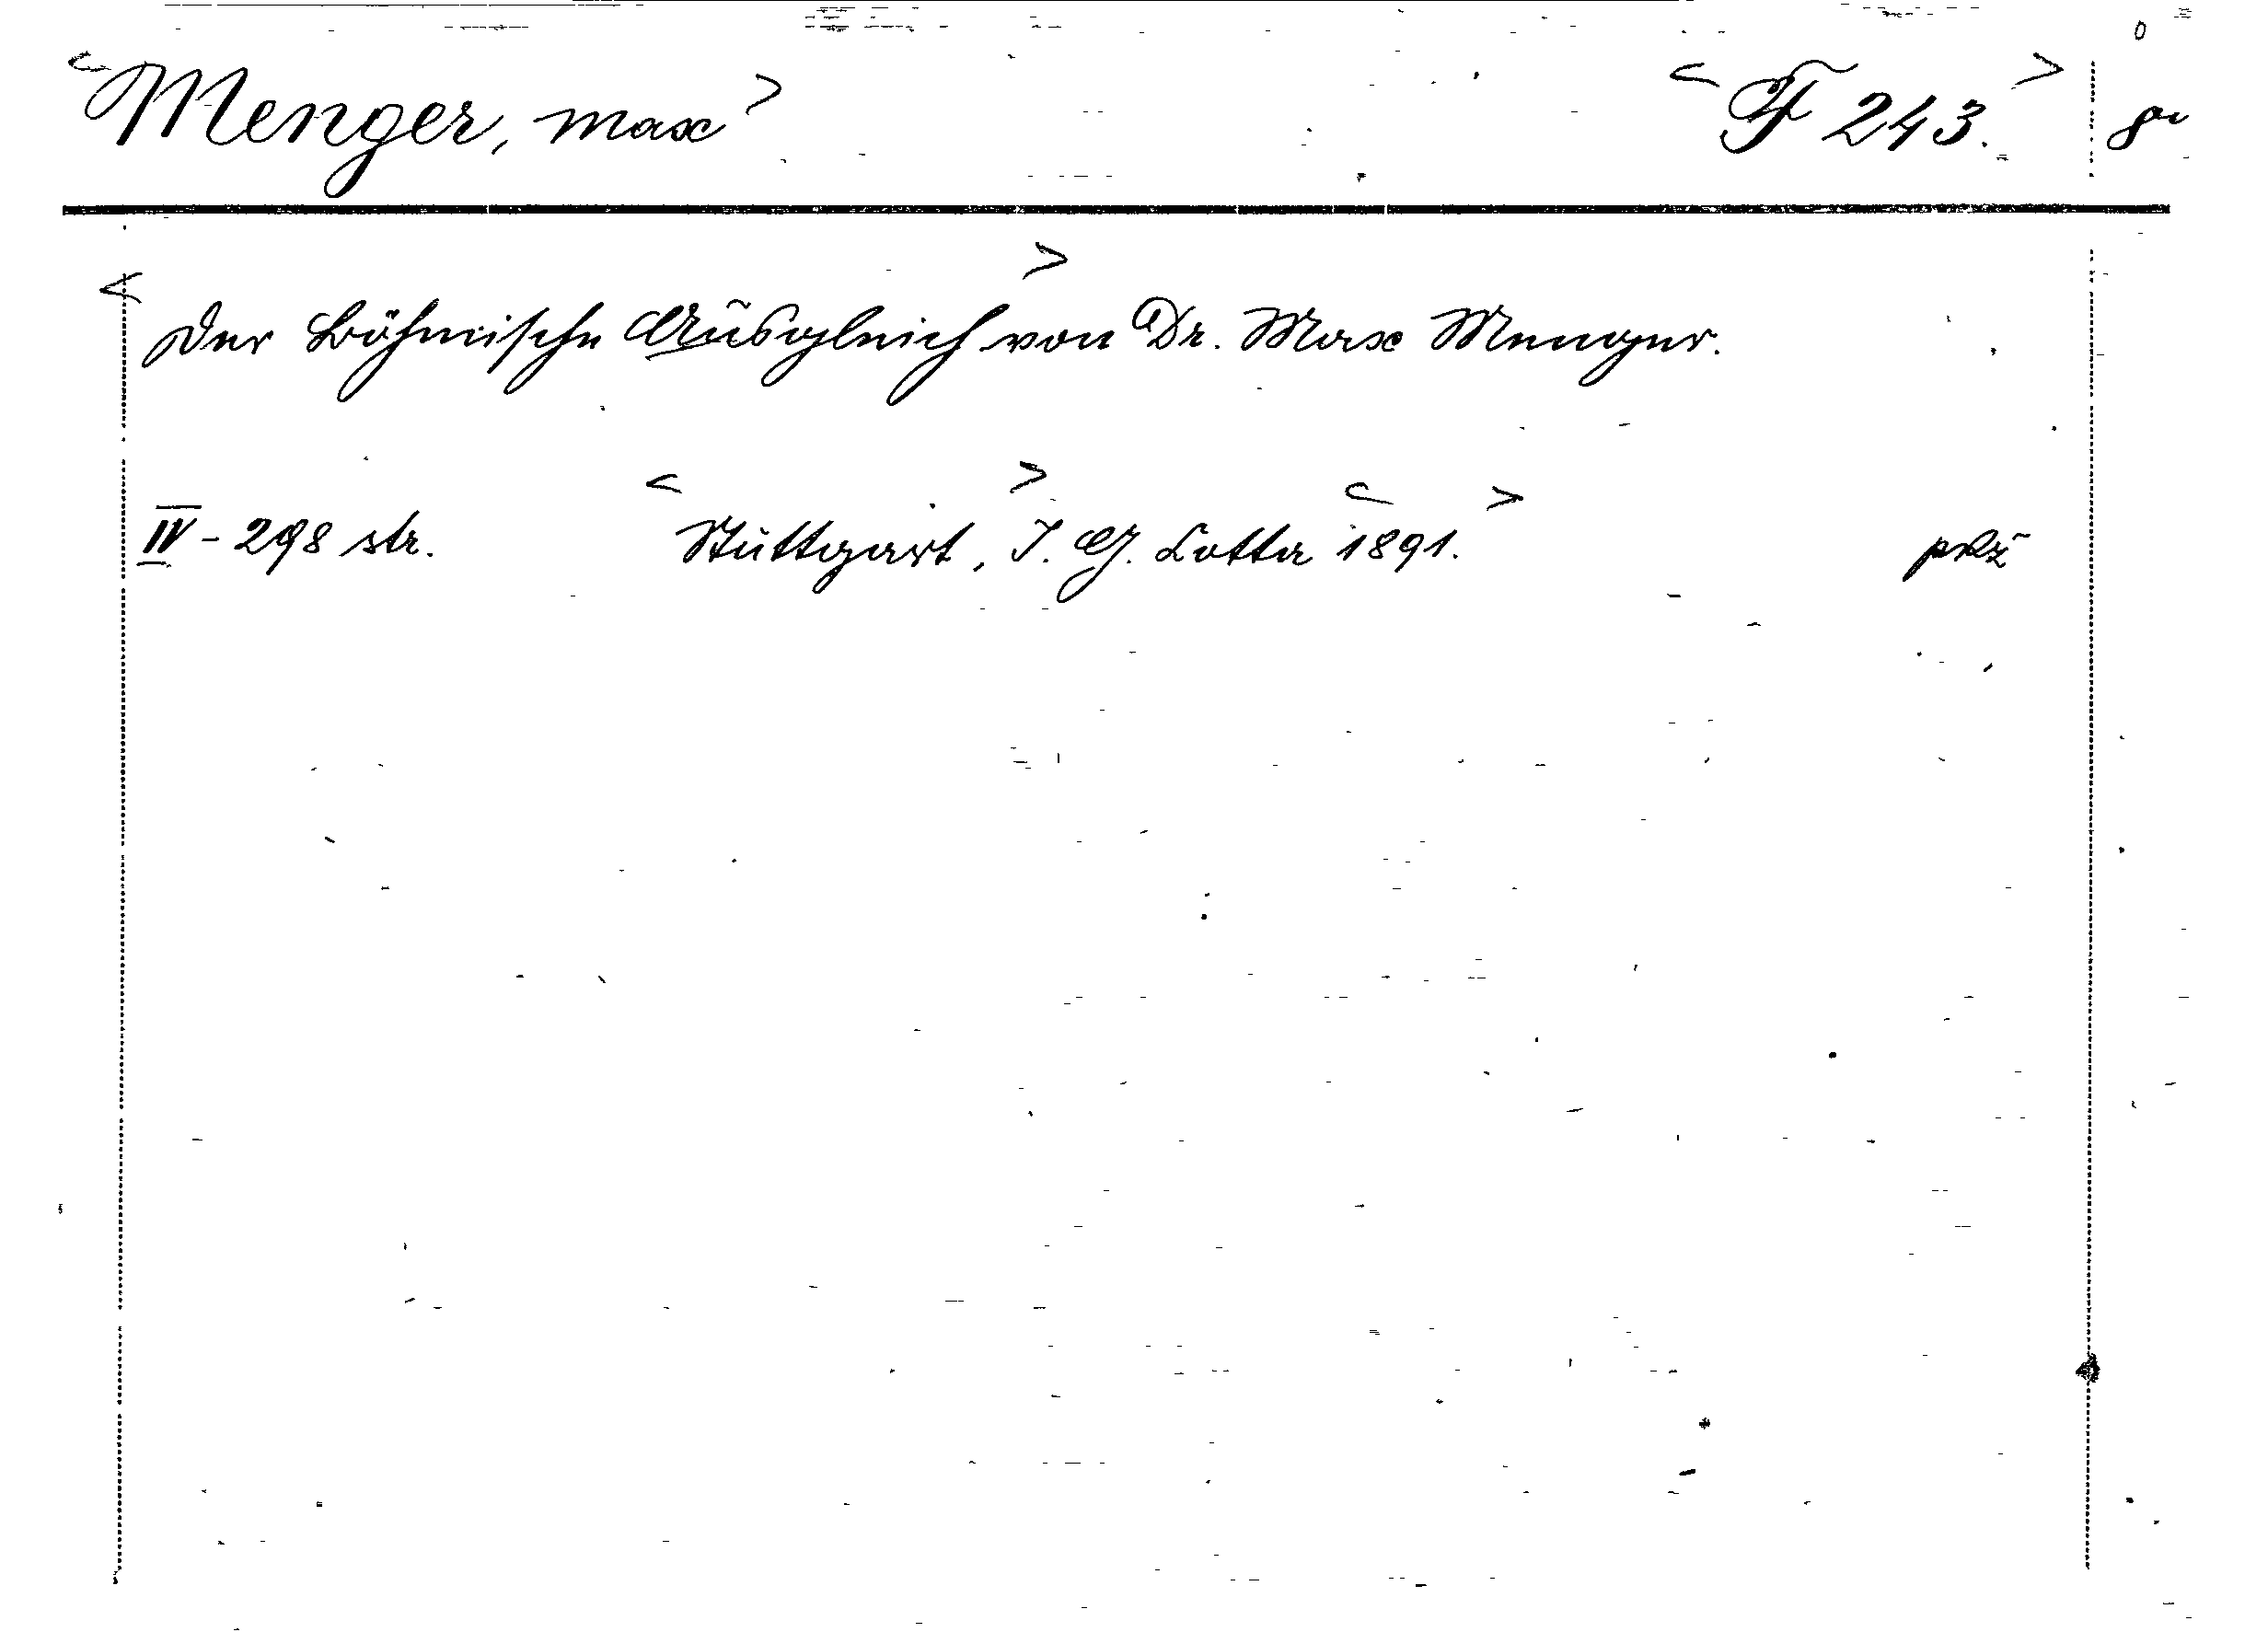 <Menger, Max> <F 243.> 8°
<Der Böhmische Ausgleich> von Dr. Max Menger.
IV - 298 str. <Stuttgart,> J. G. Cotta <1891.>